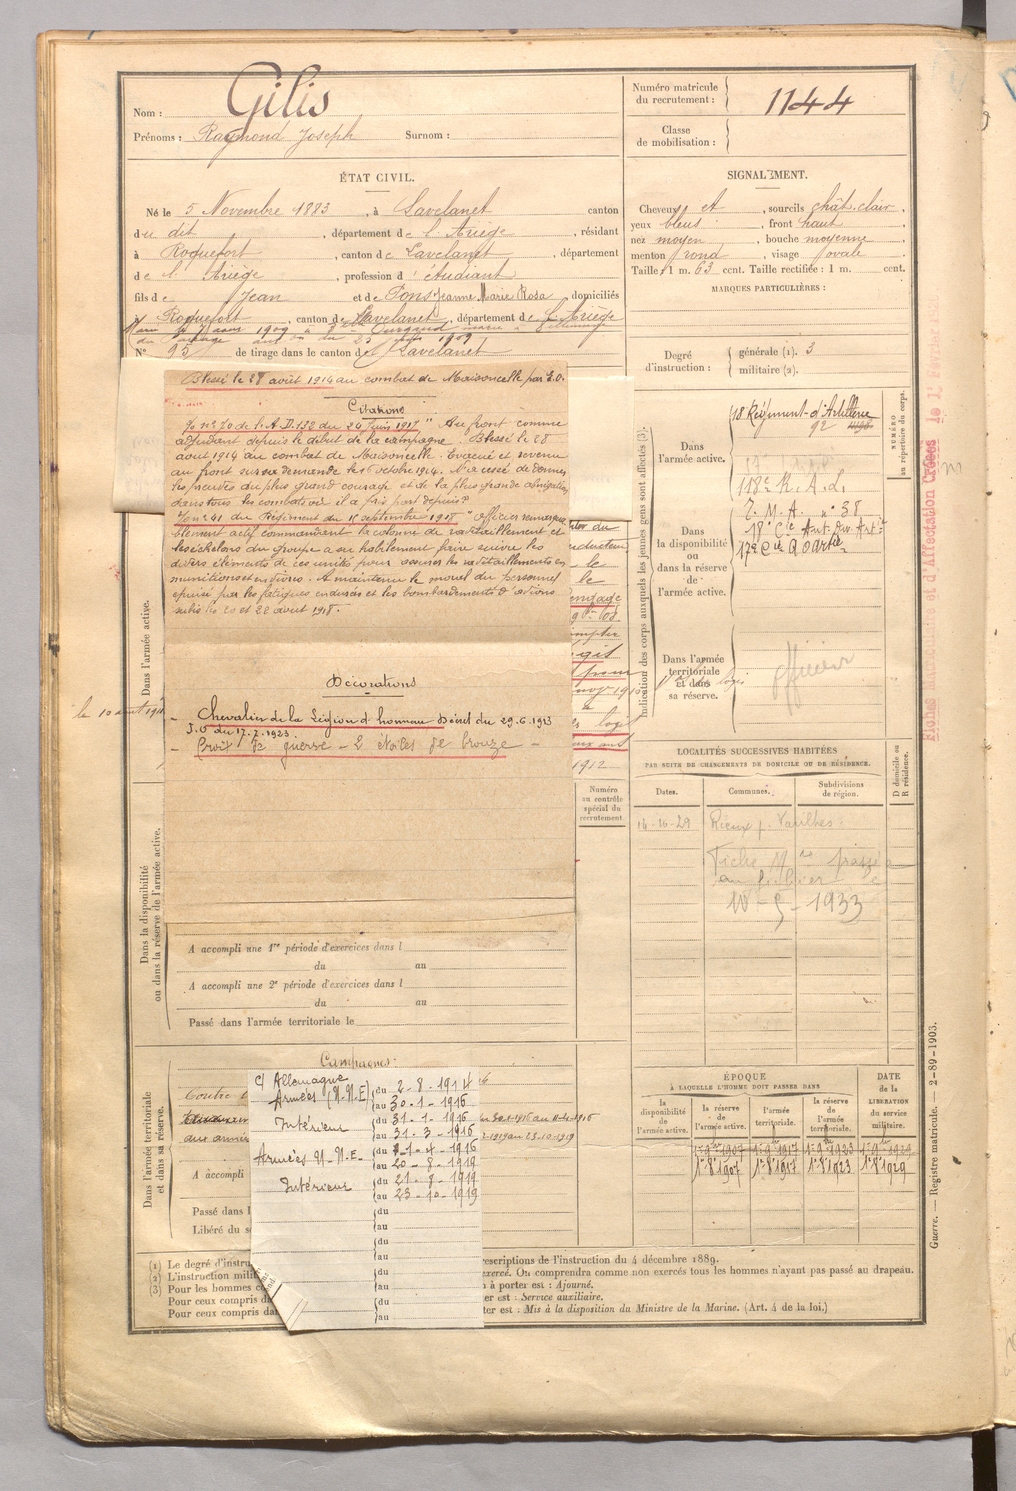 Nom : Gilis
Prénoms : Raymond Joseph Surnom :
Numéro matricule du recrutement : 1144
Classe de mobilisation :
ÉTAT CIVIL.
Né le 5 Novembre 1883, à Lavelanet canton
du dit, département de l'Ariège, résidant
à Roquefort, canton de Lavelanet, département
de l'Ariège, profession d'étudiant
fils de Jean et de Pons Jeanne Marie Rosa domiciliés
à Roquefort, canton de Lavelanet, département de l'Ariège
N° 95 de tirage dans le canton de Lavelanet
SIGNALEMENT.
Cheveux et, sourcils chât. clair,
yeux bleus, front haut
nez moyen, bouche moyenne
menton rond, visage ovale
Taille : 1 m. 63 cent. Taille rectifiée : 1 m. cent.
MARQUES PARTICULIÈRES :
Degré d'instruction : générale (1). 3
militaire (2).
Blessé le 28 août 1914 au combat de Maisoncelle par E.O.
Citations
O. n° 20 de l'A.D. 132 du 24 Juin 1917 " Au front comme
adjudant depuis le début de la campagne. Blessé le 28
août 1914 au combat de Maisoncelle. Evacué et revenu
au front sur sa demande le 16 octobre 1914. N'a cessé de donner
les preuves du plus grand courage et de la plus grande abnégation
dans tous les combats où il a pris part depuis"
O. n° 41 du Régiment du 15 septembre 1918 " Officier remarqua-
blement actif commandant la colonne de ravitaillement et
les échelons du groupe a su habilement faire suivre les
divers éléments de ces unités pour assurer les ravitaillements en
munitions et en vivres. A maintenu le moral du personnel
épuisé par les fatigues endurées et les bombardements d'avions
subis les 20 et 22 août 1918.
Décorations
- Chevalier de la Légion d'honneur Décret du 29.6.1923
J.O du 17.7.1923
- Croix de guerre - 2 étoiles de bronze -
Dans l'armée active.
le 10 août 191
Dans la disponibilité
ou dans la réserve de l'armée active.
engagé
1912
Numéro
au contrôle
spécial du
recrutement.
A accompli une 1re période d'exercices dans l
du au
A accompli une 2e période d'exercices dans l
du au
Passé dans l'armée territoriale le
Indication des corps auxquels les jeunes gens sont affectés (3).
NUMÉRO
au répertoire du corps.
Dans
l'armée active.
18 Régiment d'Artillerie
92
118e R.A.L.
Dans
la disponibilité
ou
dans la réserve
de
l'armée active.
T. M. A. n° 38
17e Cie
Dans l'armée
territoriale
et dans
sa réserve.
officier
LOCALITÉS SUCCESSIVES HABITÉES
PAR SUITE DE CHANGEMENTS DE DOMICILE OU DE RÉSIDENCE.
Dates. Communes. Subdivisions de région.
D domicile ou
R résidence.
14-10-29 Rieux p. Varilhes
Fiche Mre passée
au fichier le
10-5-1933
Dans l'armée territoriale
et dans sa réserve.
Campagnes :
C/ Allemagne
Armées (N.N.E) du 2-8-1914
au 30-1-1916
Intérieur du 31-1-1916
au 31-3-1916
Armées N.N.E- du 1-4-1916
au 20-8-1919
Intérieur du 21-8-1919
au 23-10-1919
du
au
du
au
du
au
du
au
Contre
aux armées
1919 au 23-10-1919
A accompli
Passé dans l
Libéré du s
ÉPOQUE
À LAQUELLE L'HOMME DOIT PASSER DANS
la disponibilité de l'armée active.
la réserve de l'armée active.
l'armée territoriale.
la réserve de l'armée territoriale.
DATE
de la
LIBÉRATION
du service
militaire.
1er 8bre 1907 1er 8bre 1917 1er 8bre 1923 1er 8bre 1929
(1) Le degré d'instru rescriptions de l'instruction du 4 décembre 1889.
(2) L'instruction milit exercé. On comprendra comme non exercés tous les hommes n'ayant pas passé au drapeau.
(3) Pour les hommes c n à porter est : Ajourné.
Pour ceux compris da er est : Service auxiliaire.
Pour ceux compris da ter est : Mis à la disposition du Ministre de la Marine. (Art. 4 de la loi.)
Guerre. — Registre matricule. — 2-89-1903.
et d'Affectation Créées le 1er Février